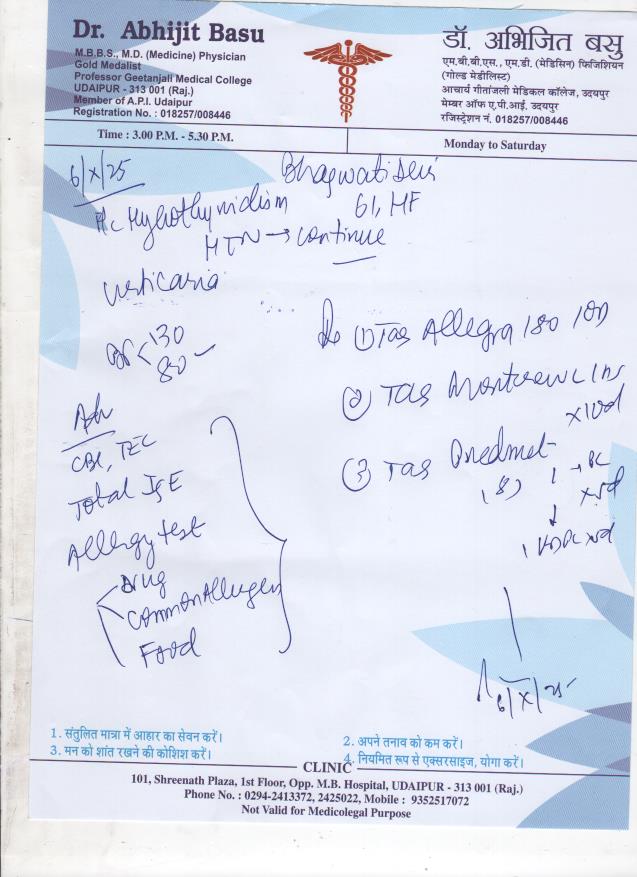 Dr. Abhijit Basu
M.B.B.S., M.D. (Medicine) Physician
Gold Medalist
Professor Geetanjali Medical College
UDAIPUR - 313 001 (Raj.)
Member of A.P.I. Udaipur
Registration No. : 018257/008446
डॉ. अभिजित बसु
एम.बी.बी.एस., एम.डी. (मेडिसिन) फिजिशियन
(गोल्ड मेडीलिस्ट)
आचार्य गीतांजली मेडिकल कॉलेज, उदयपुर
मेम्बर ऑफ ए.पी.आई. उदयपुर
रजिस्ट्रेशन नं. 018257/008446
Time : 3.00 P.M. - 5.30 P.M.
Monday to Saturday
6/X/25
Bhagwati Devi
61,
Hypothyroidism
HTN → continue
Urticaria
BP < 130
80
Adv
CBC, TEC
Total IgE
Allergy test
Drug
Common Allergen
Food
Rx 1) Tab Allegra 180
2) Tab
x10d
3) Tab
(8)
6/X/25
1. संतुलित मात्रा में आहार का सेवन करें।
2. अपने तनाव को कम करें।
3. मन को शांत रखने की कोशिश करें।
4. नियमित रूप से एक्सरसाइज, योगा करें।
CLINIC
101, Shreenath Plaza, 1st Floor, Opp. M.B. Hospital, UDAIPUR - 313 001 (Raj.)
Phone No. : 0294-2413372, 2425022, Mobile : 9352517072
Not Valid for Medicolegal Purpose